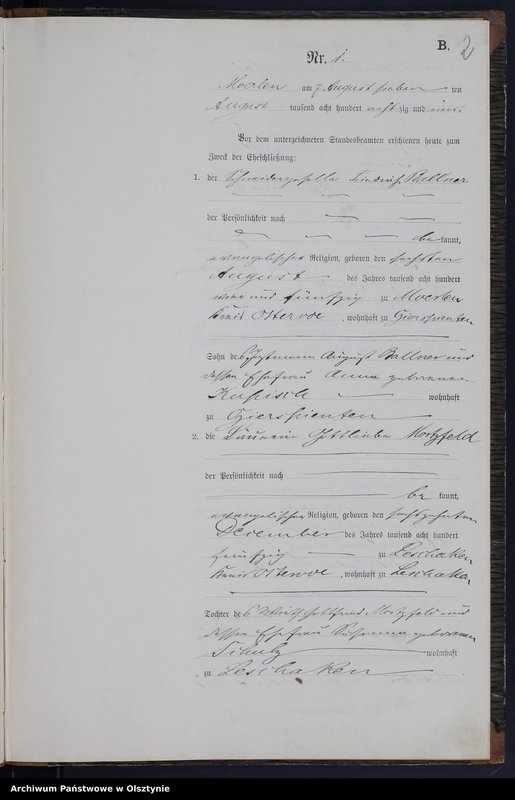 B.
2
Nr. 1.
Moerlen am 7 August sieben ten
August tausend acht hundert acht zig und eins.
Vor dem unterzeichneten Standesbeamten erschienen heute zum
Zweck der Eheschließung:
1. der Schneidergeselle Friedrich Ballner
der Persönlichkeit nach
bekannt,
evangelischer Religion, geboren den sechsten
August des Jahres tausend acht hundert
vier und fünfzig zu Moerlen
Kreis Osterode, wohnhaft zu Gierspienten
Sohn des August Ballner und
dessen Ehefrau Anna geborenen
Kupisch wohnhaft
zu Gierspienten
2. die Gottliebe Mortzfeld
der Persönlichkeit nach
be kannt,
evangelischer Religion, geboren den sechszehnten
Dezember des Jahres tausend acht hundert
fünfzig zu Leschaken
Kreis Osterode, wohnhaft zu Leschaken
Tochter des Wirth Gottfried Mortzfeld und
dessen Ehefrau Susanna geborenen
Schulz wohnhaft
zu Leschaken
Archiwum Państwowe w Olsztynie